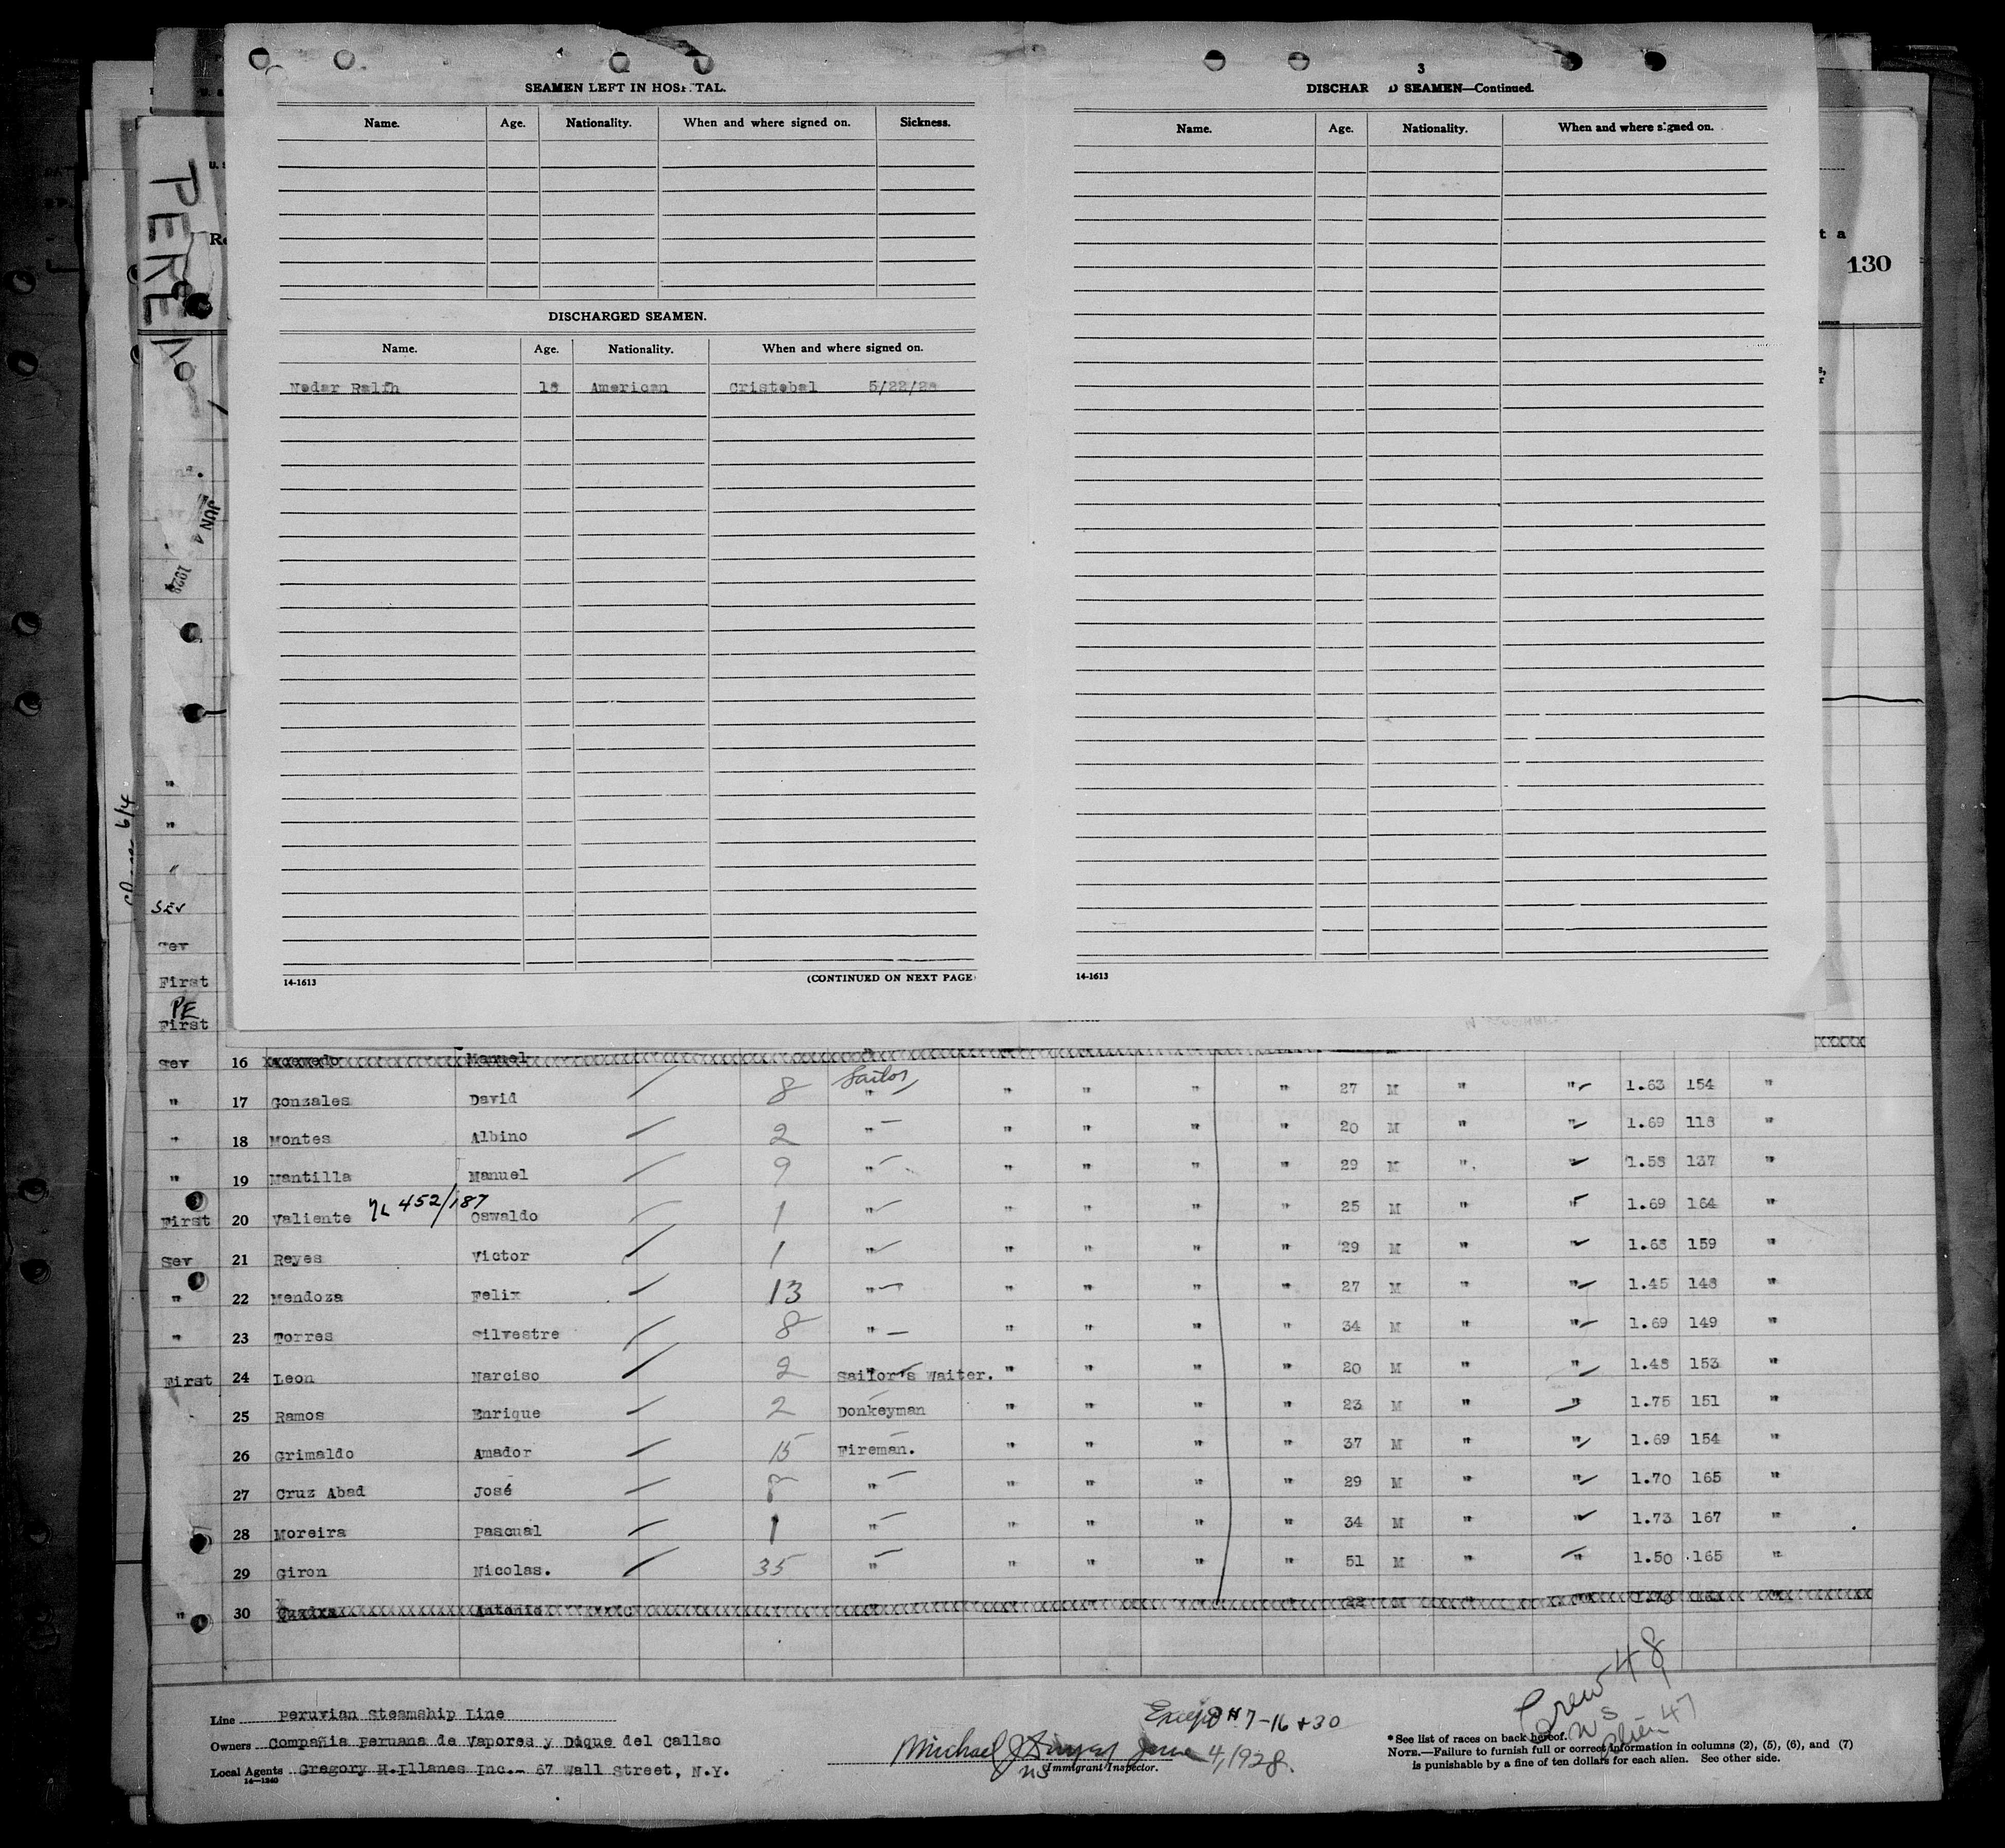 SEAMEN LEFT IN HOSPITAL.
Name. Age. Nationality. When and where signed on. Sickness.
DISCHARGED SEAMEN.
Name. Age. Nationality. When and where signed on.
Nedar Ralph 18 American Cristobal 5/22/28
14-1613 (CONTINUED ON NEXT PAGE)
3
DISCHARGED SEAMEN—Continued.
Name. Age. Nationality. When and where signed on.
14-1613
130
t a
PERE
JUN 4
6/4
"
"
"
SEV
Sev
First
PE
First
Sev 16 Acevedo Manuel
Sailor
" 17 Gonzales David 8 " " " " " 27 M " " 1.63 154 "
" 18 Montes Albino 2 " " " " " 20 M " " 1.69 118 "
" 19 Mantilla Manuel 9 " " " " " 29 M " " 1.58 137 "
452/187
First 20 Valiente Oswaldo 1 " " " " " 25 M " " 1.69 164 "
Sev 21 Reyes Victor 1 " " " " " 29 M " " 1.68 159 "
" 22 Mendoza Felix 13 " " " " " 27 M " " 1.45 148 "
" 23 Torres Silvestre 8 " " " " " 34 M " " 1.69 149 "
First 24 Leon Narciso 2 Sailor's Waiter. " " " " 20 M " " 1.48 153 "
25 Ramos Enrique 2 Donkeyman " " " " 23 M " " 1.75 151 "
26 Grimaldo Amador 15 Fireman. " " " " 37 M " " 1.69 154 "
27 Cruz Abad José 8 " " " " " 29 M " " 1.70 165 "
28 Moreira Pascual 1 " " " " " 34 M " " 1.73 167 "
29 Giron Nicolas. 35 " " " " " 51 M " " 1.50 165 "
" 30 Antonio " " " " " 22 M " "
Crew 48
NS
alien 47
Line Peruvian Steamship Line
Owners Compañia Peruana de Vapores y Dique del Callao
Local Agents Gregory H.Illanes Inc.- 67 Wall Street, N.Y.
14—1240
Except # 7-16 + 30
Michael J June 4, 1928.
NS Immigrant Inspector.
* See list of races on back hereof.
NOTE.—Failure to furnish full or correct information in columns (2), (5), (6), and (7)
is punishable by a fine of ten dollars for each alien. See other side.